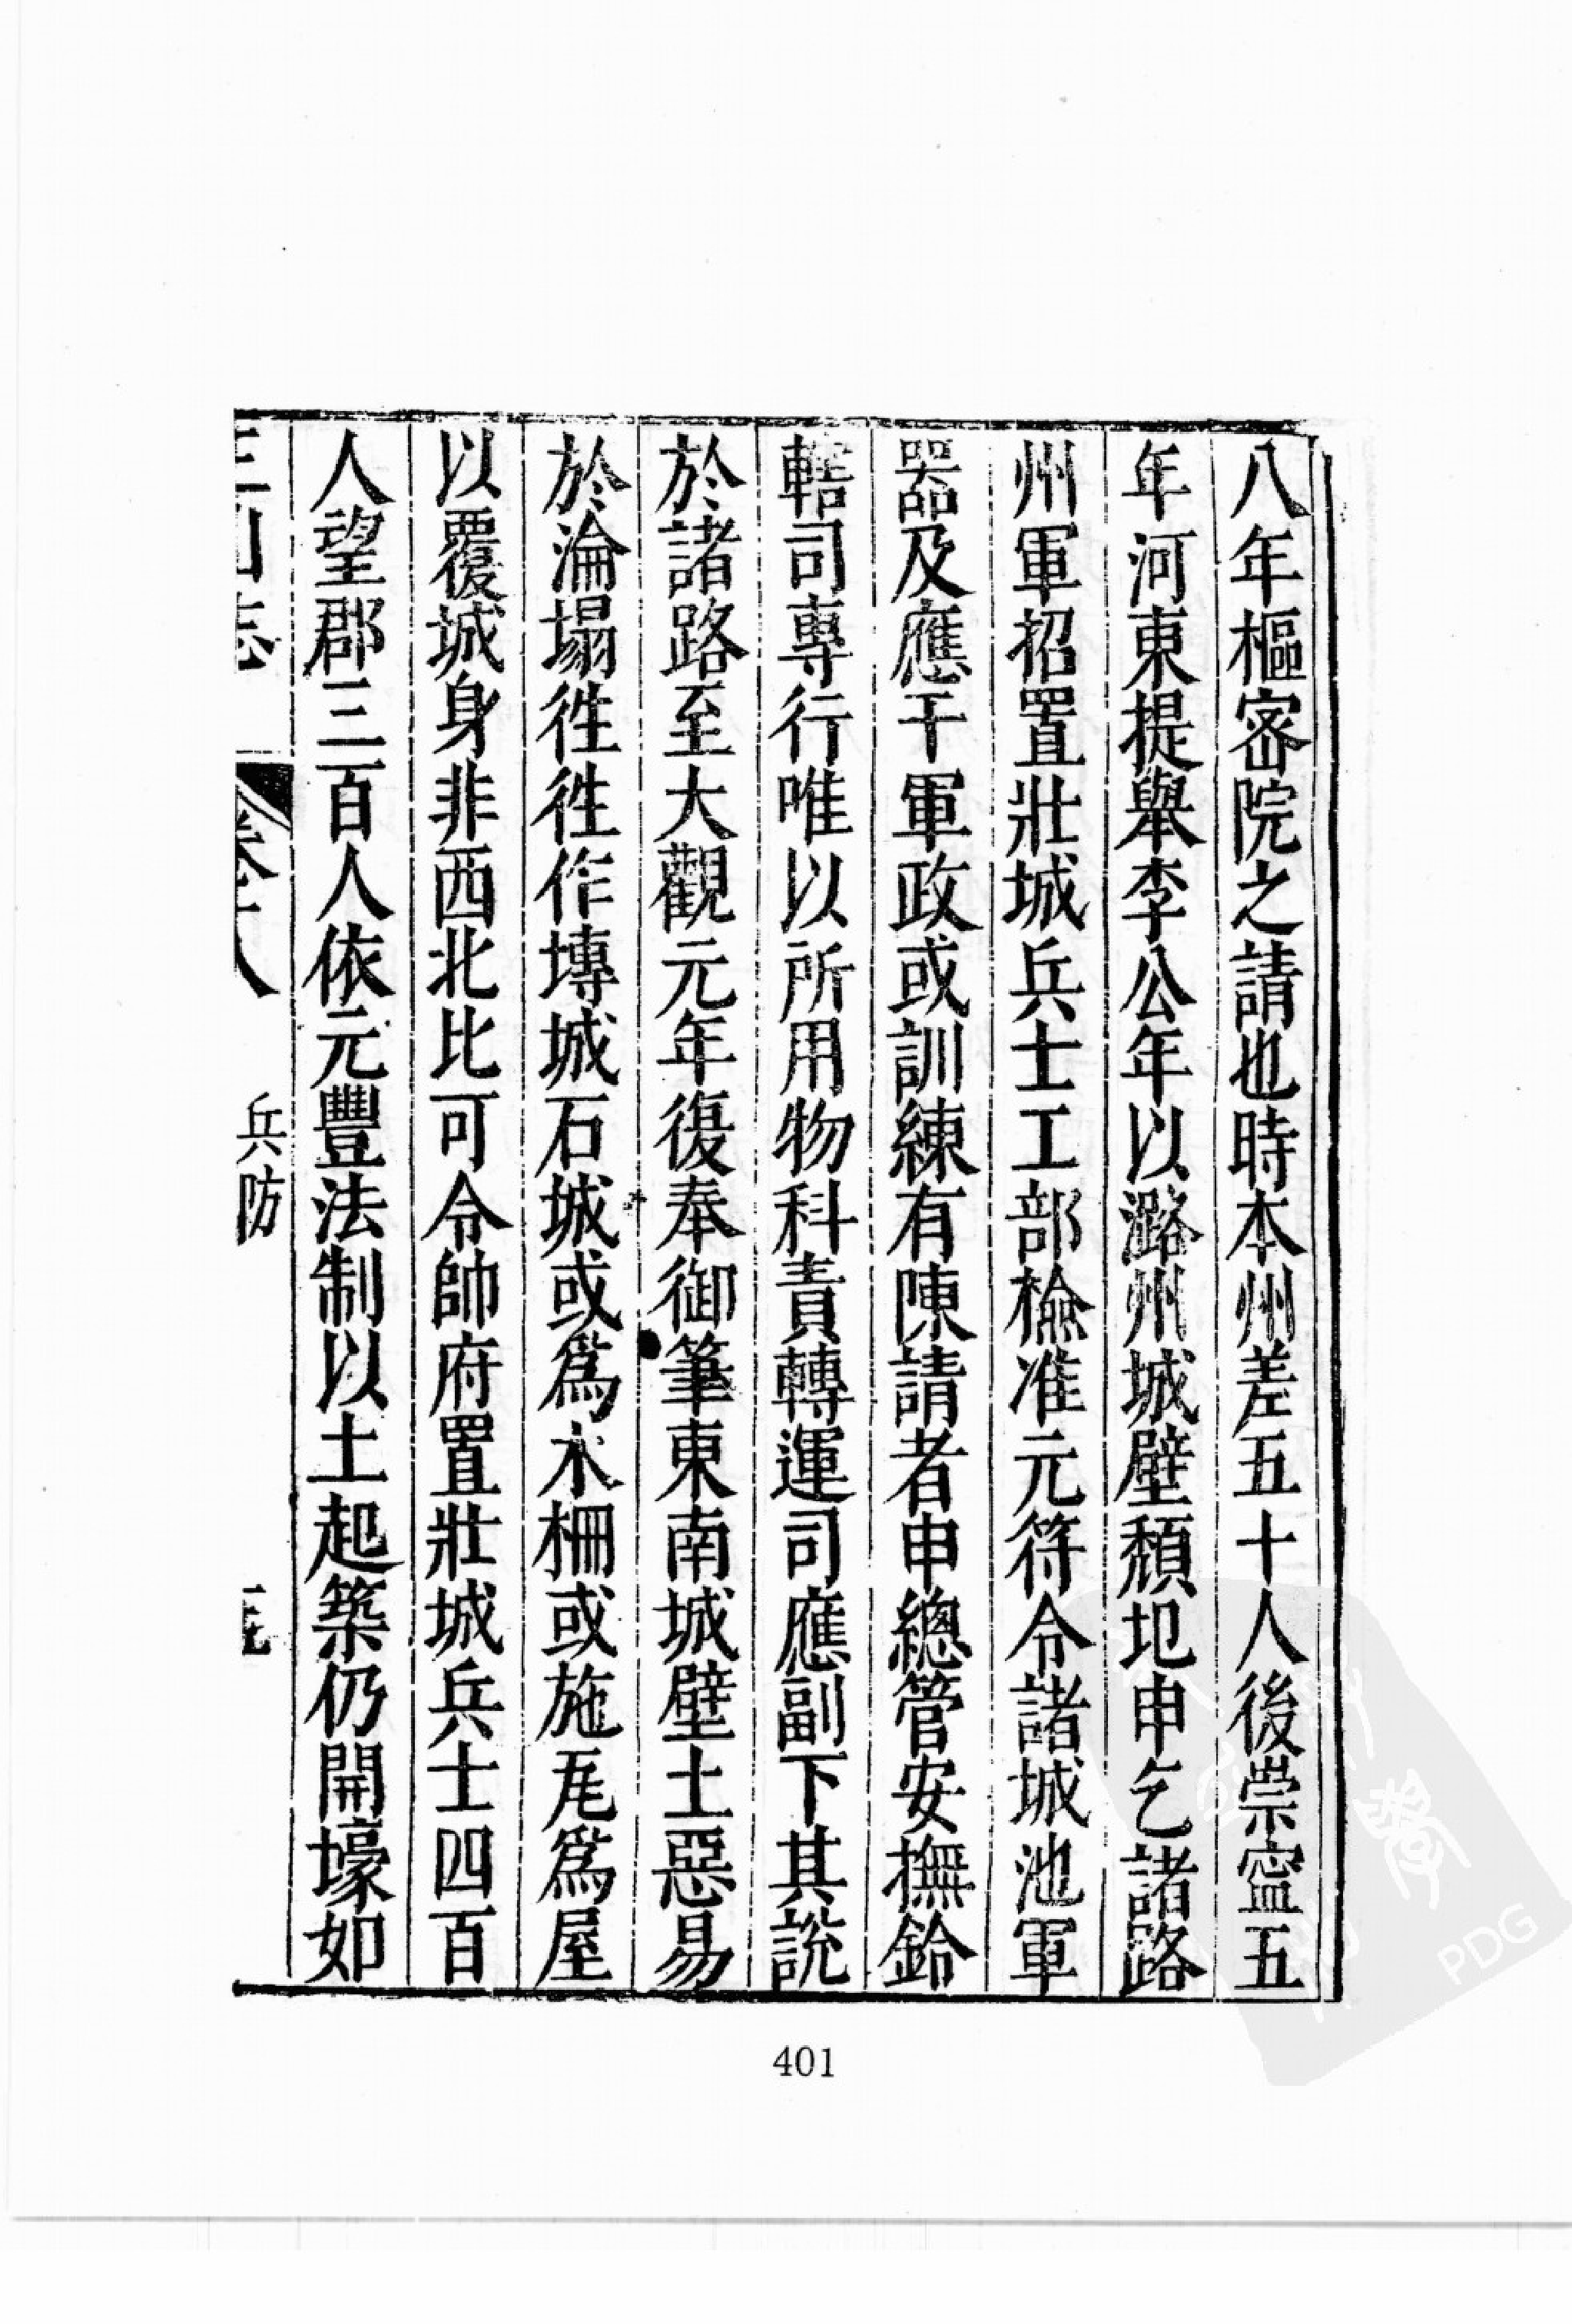 八年樞密院之請也時本州差五十人後崇寧五
年河東提舉李公年以潞州城壁頹圯申乞諸路
州軍招置壯城兵士工部檢准元符令諸城池軍
器及應干軍政或訓練有陳請者申總管安撫鈐
轄司專行唯以所用物料責轉運司應副下其說
於諸路至大觀元年復奉御筆東南城壁土惡易
於淪塌徃徃作塼城石城或爲木柵或施瓦爲屋
以覆城身非西北比可令帥府置壯城兵士四百
人望郡三百人依元豐法制以土起築仍開壕如
三山志 卷十八 兵防
401
PDG